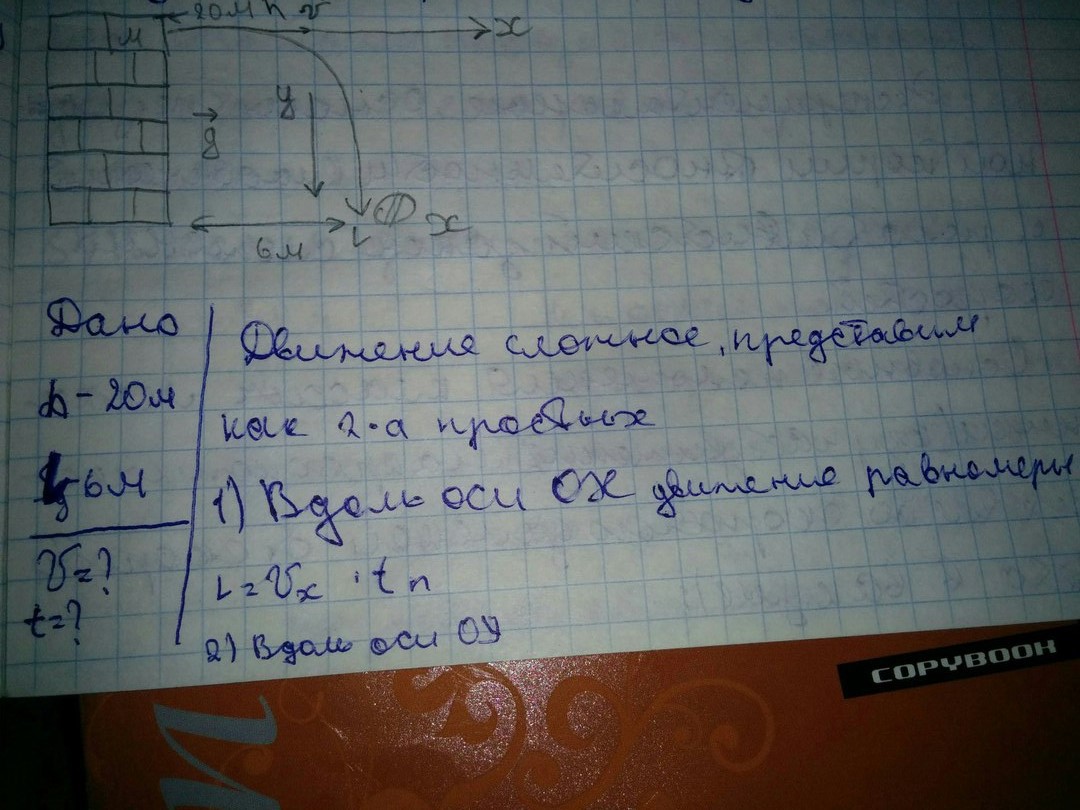 20м h v
x
м
y
g
6м L x
Дано
h - 20м
L 6м
V=?
t=?
Движение сложное, представим
как 2-а простых
1) Вдоль оси OX движение равномеры
L = Vx · tп
2) Вдоль оси OY
COPYBOOK